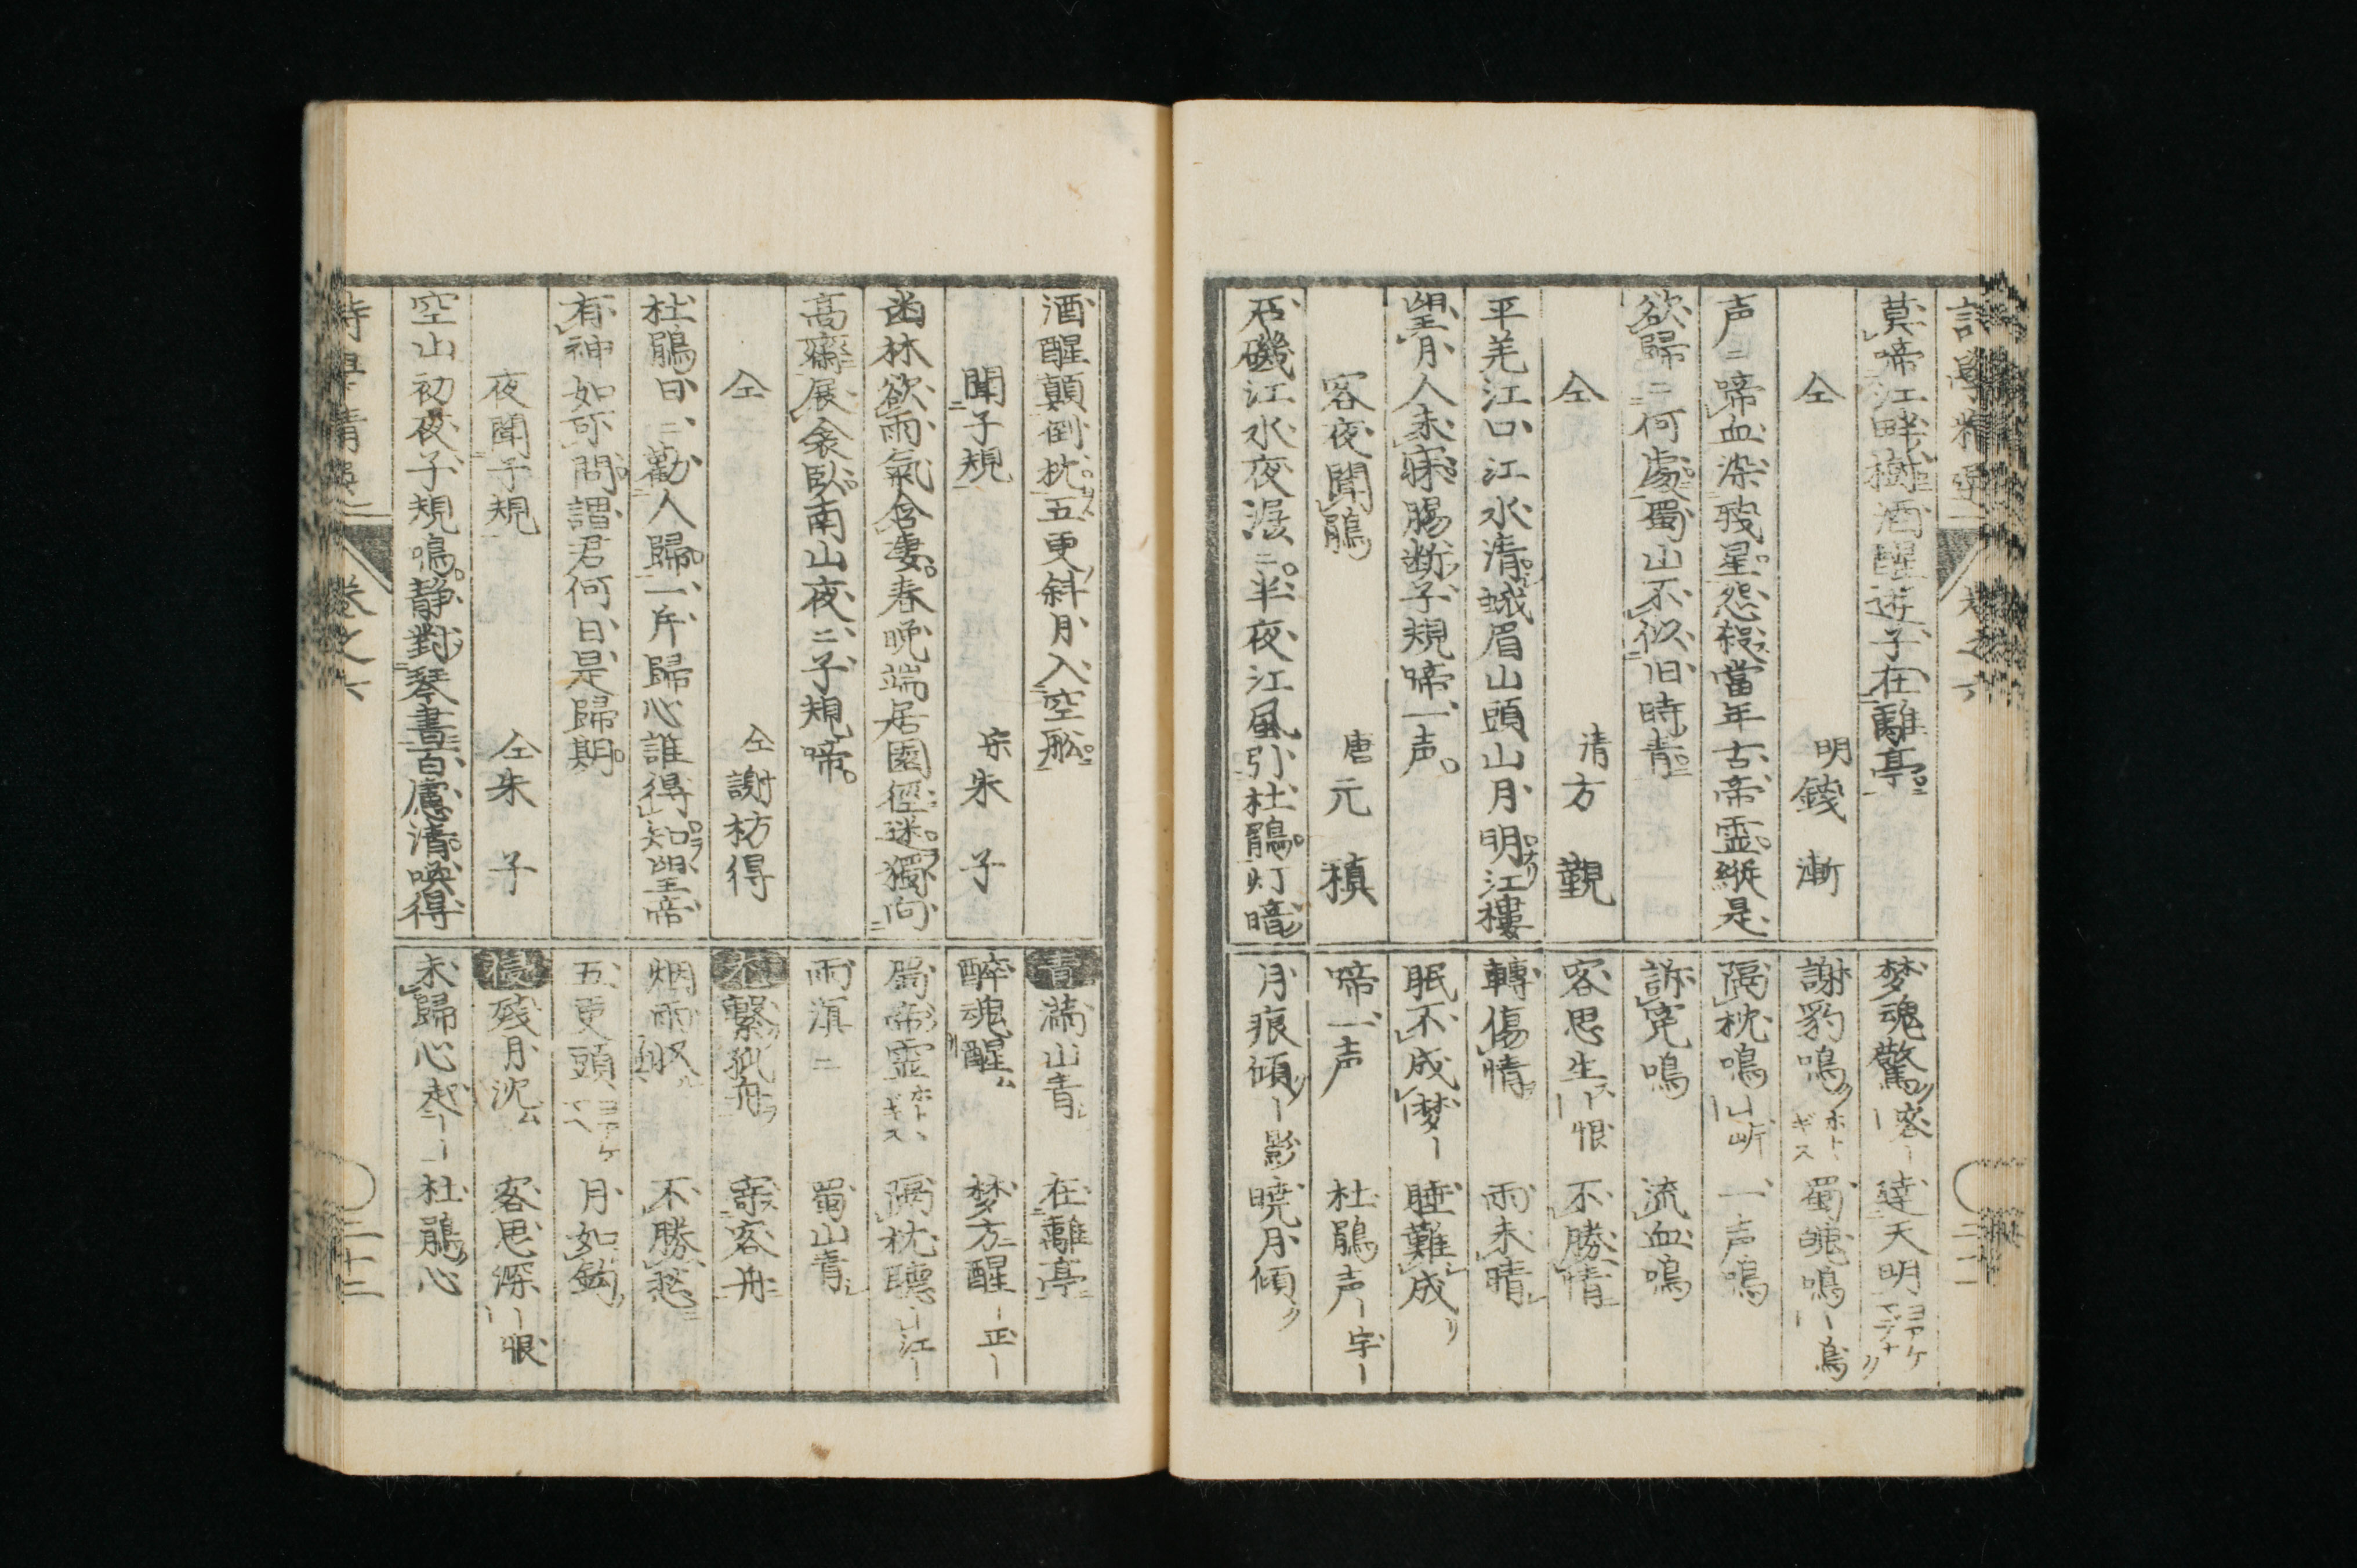 莫啼江畔樹酒醒遊子在離亭
仝 明錢漸
声ニ啼血染残星怨殺當年古帝霊縦是
欲歸ニ何處蜀山不似旧時青
仝 清方覲
平羌江口江水清峨眉山頭山月明江樓
望月人未寐腸断子規啼一声
客夜聞鵑 唐元稹
石磯江水夜潺ニ半夜江風引杜鵑灯暗
梦魂驚客ー 達天明
謝豹鳴 蜀魄鳴
隔枕鳴 一声鳴
訴寃鳴 流血鳴
客思生ー恨 不勝情
轉傷情 雨未晴
眠不成梦ー 睡難成
啼一声 杜鵑声ー宇ー
月痕傾ー影 曉月傾
酒醒顛倒枕五更斜月入空舩
聞子規 宋朱子
茵林欲雨氣含凄春晩端居園徑迷獨向
高齋展衾臥南山夜ニ子規啼
仝 仝謝枋得
杜鵑日ニ勸人歸一片歸心誰得知望帝
有神如可問謂君何日是歸期
夜聞子規 仝朱子
空山初夜子規鳴静對琴書百慮清喚得
青 満山青 在離亭
醉魂醒 梦方醒ー正ー
蜀帝霊 隔枕聴ー江ー
雨溟ニ 蜀山青
繋孤舟 寄客舟
烟雨収 不勝愁
五更頭 月如鈎
残月沈 客思深ー恨
未歸心 杜鵑心
卷之六
三十二